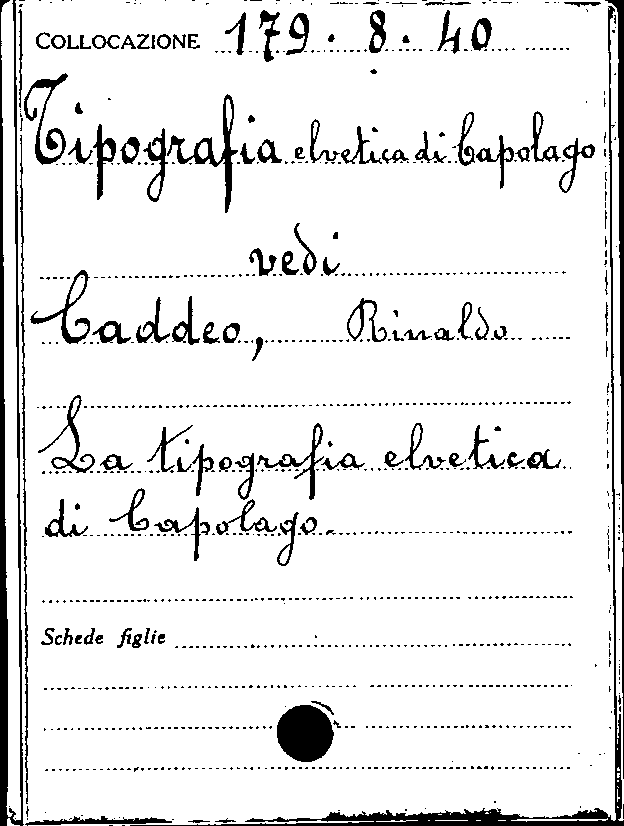 COLLOCAZIONE 179. 8. 40
Tipografia elvetica di Capolago
vedi
Caddeo, Rinaldo
La tipografia elvetica
di Capolago.
Schede figlie